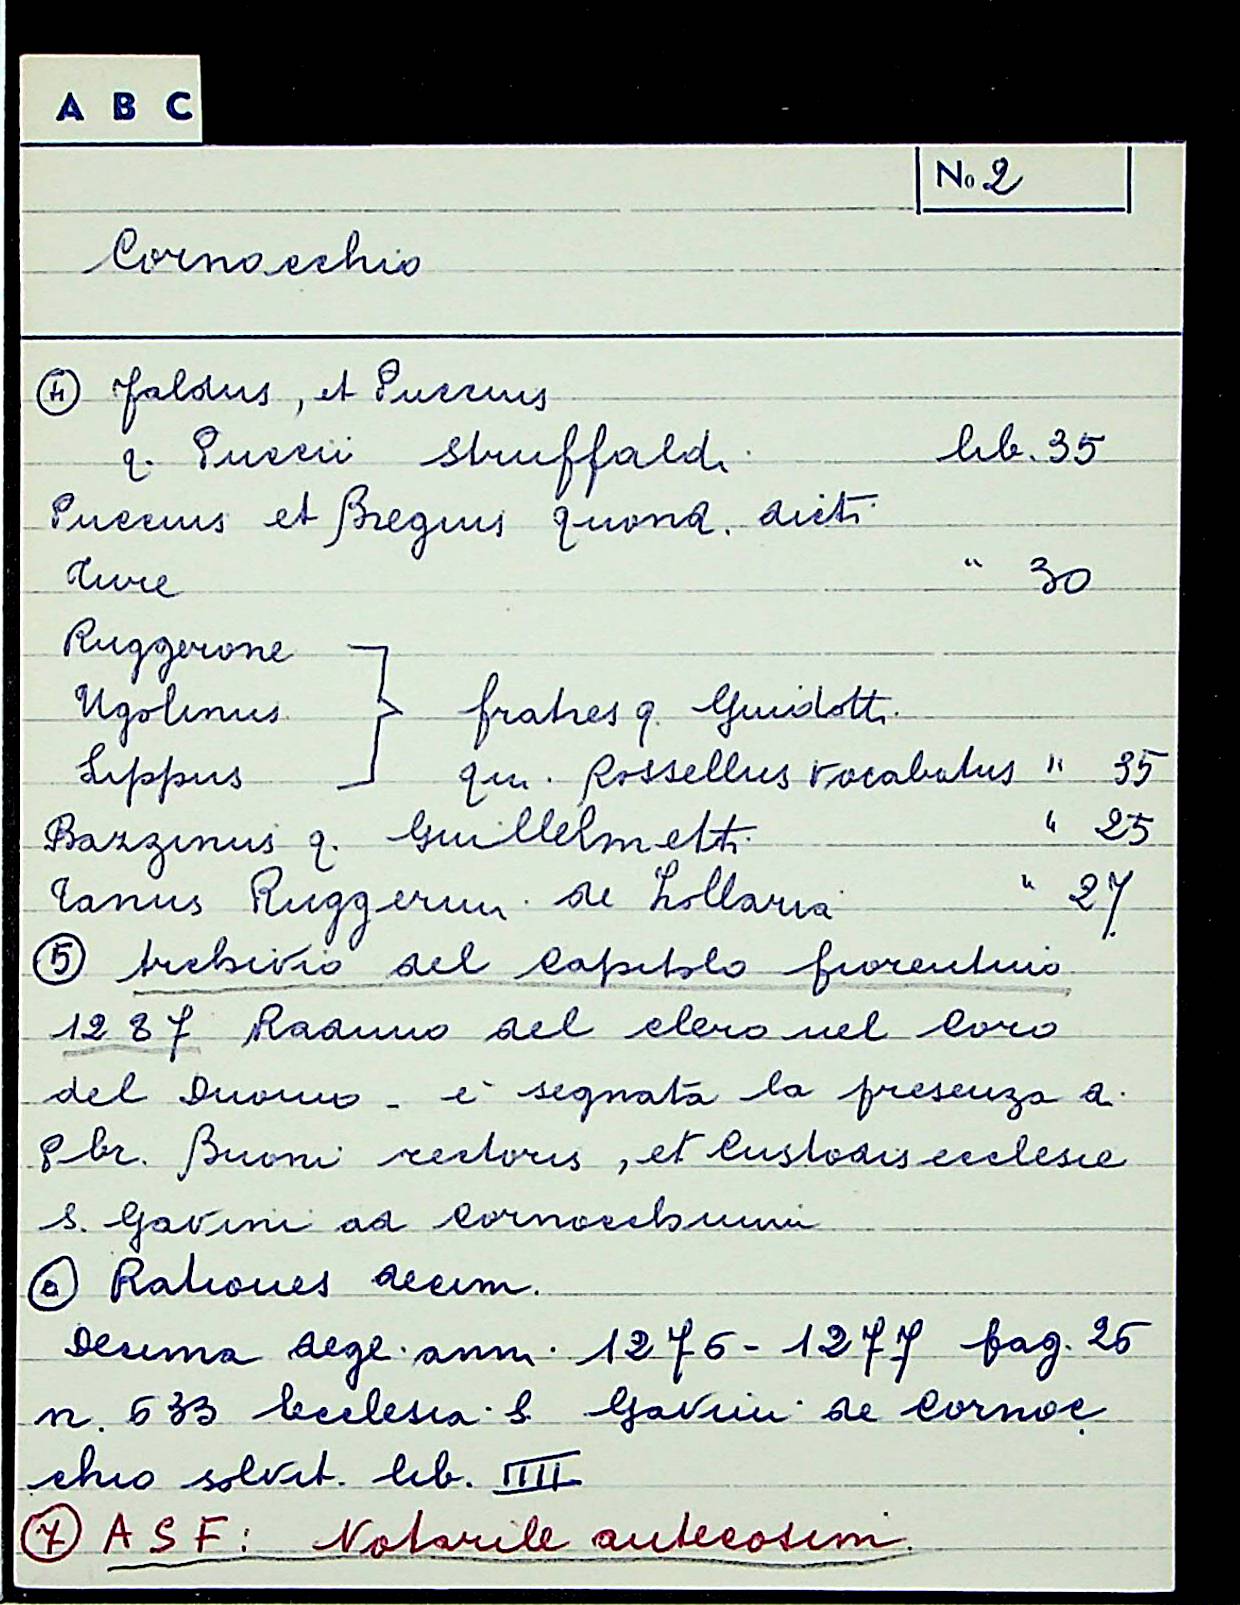 A B C
No 2
Cornacchio
④ Faldus, et Puccius
q. Puccii Struffaldi lib. 35
Puccius et Bregius quond. dicti
Ture " 30
Ruggerone
Ugolinus fratres q. Guidotti
Lippus qui Rossellus vocabatus " 35
Bazzinus q. Guillelmetti " 25
Tanus Ruggerini de Lollaria " 27
⑤ Archivio del Capitolo fiorentino
1287 Raduno del clero nel Coro
del Duomo - è segnata la presenza a.
Pbr. Buoni rectoris, et Custodis ecclesie
S. Gavini ad Cornocchium
⑥ Rationes decim.
Decima degl. ann. 1276-1277 pag. 26
n. 633 Ecclesia S. Gavini de Cornoc
chio solvit. lib. IIII
⑦ ASF: Notarile antecosim.